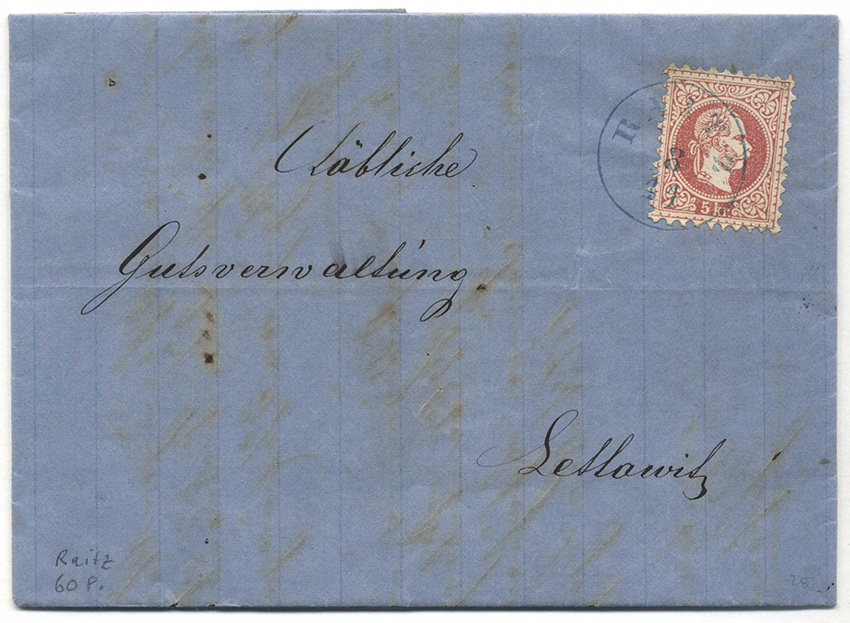 RAITZ
3
5 kr
Löbliche
Gutsverwaltung
Lettowitz
Raitz
60 P.
25